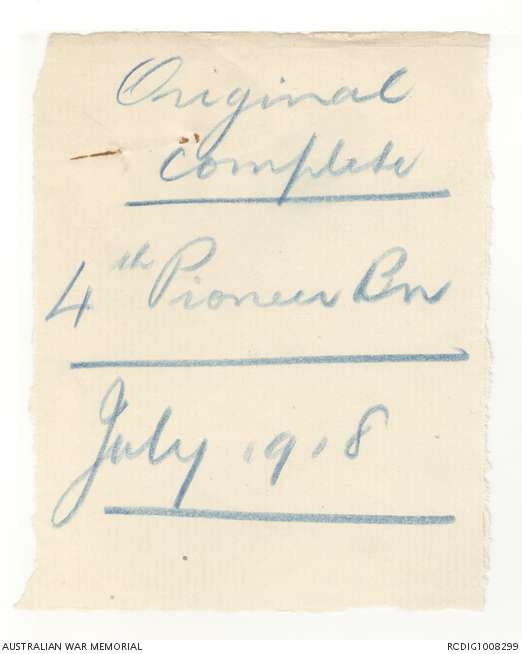 Original
complete
4th Pioneer Bn
July 1918
AUSTRALIAN WAR MEMORIAL
RCDIG1008299